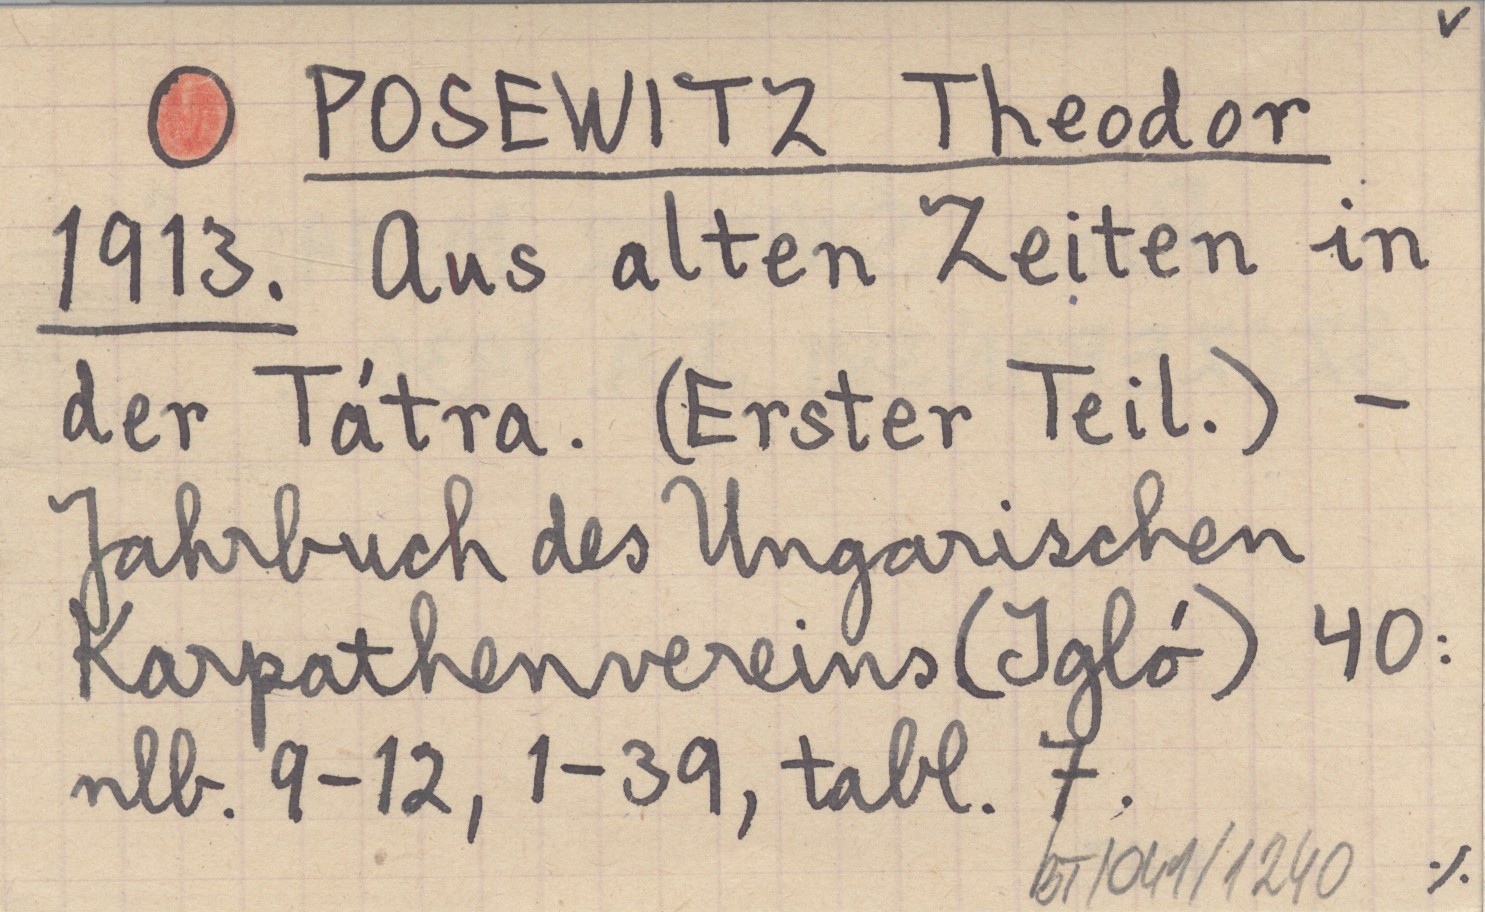 POSEWITZ Theodor
1913. Aus alten Zeiten in
der Tátra. (Erster Teil.) –
Jahrbuch des Ungarischen
Karpathenvereins (Igló) 40:
nlb. 9–12, 1–39, tabl. 7.
BT/041/1240 ./.